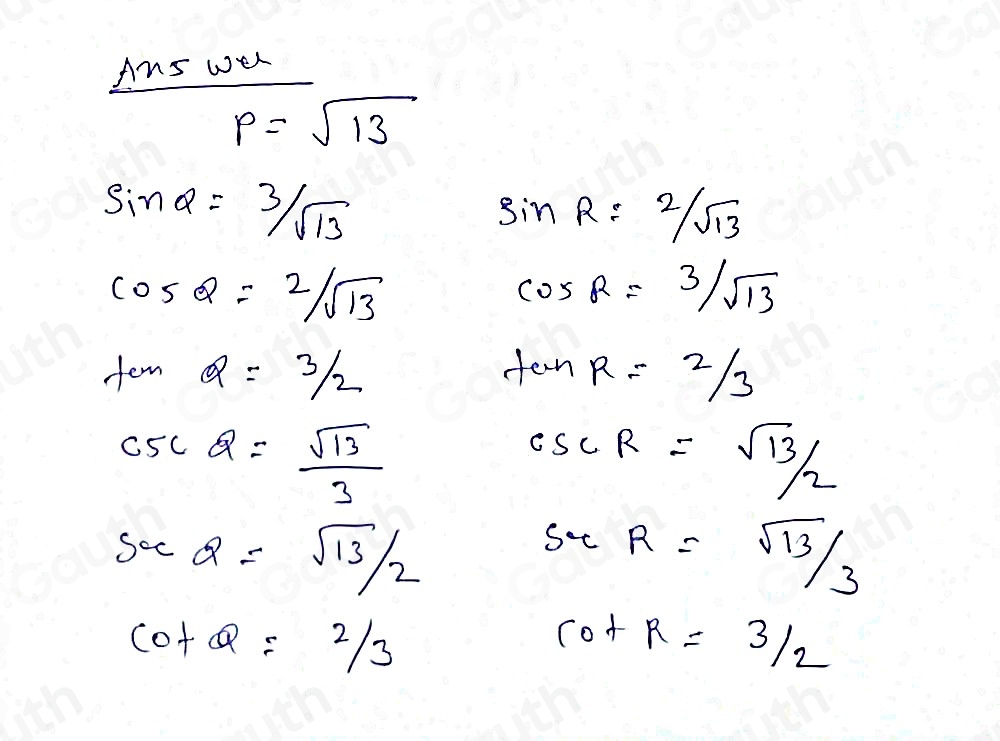 Answer
P = √13
Sin Q = 3/√13 sin R = 2/√13
cos Q = 2/√13 cos R = 3/√13
tan Q = 3/2 tan R = 2/3
csc Q = √13/3 csc R = √13/2
Sec Q = √13/2 Sec R = √13/3
Cot Q = 2/3 cot R = 3/2
Gauth